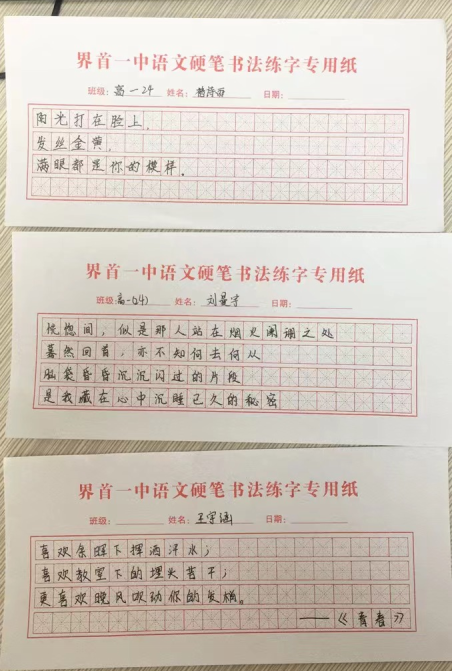 界首一中语文硬笔书法练字专用纸
班级: 高一24 姓名: 日期:
阳光打在脸上.
发丝金黄.
满眼都是你的模样.
界首一中语文硬笔书法练字专用纸
班级: 高一(24) 姓名: 刘 日期:
恍惚间，似是那人站在烟火阑珊之处
蓦然回首，亦不知何去何从
脑袋昏昏沉沉闪过的片段
是我藏在心中沉睡已久的秘密
界首一中语文硬笔书法练字专用纸
班级: 姓名: 王宇涵 日期:
喜欢余晖下挥洒汗水；
喜欢教室下的埋头苦干；
更喜欢晚风吹动你的发梢。
——《青春》